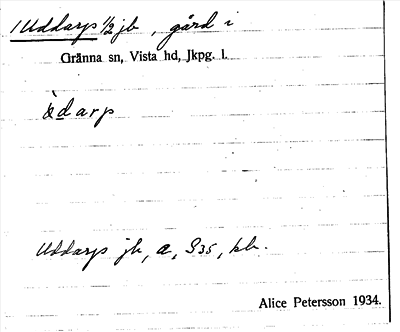 1 Uddarps ½ jb, gård i
Gränna sn, Vista hd, Jkpg. l.
ùdarp
Uddarps jb, a, S35, kb.
Alice Petersson 1934.